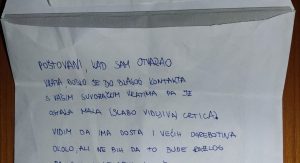 POŠTOVANI, KAD SAM OTVARAO
VRATA DOŠLO JE DO BLAGOG KONTAKTA
S VAŠIM SUVOZAČKIM VRATIMA DA JE
OSTALA MALA (SLABO VIDLJIVA) CRTICA.
VIDIM DA IMA DOSTA I VEĆIH OGREBOTINA
OKOLO, ALI NE BIH DA TO BUDE RAZLOG